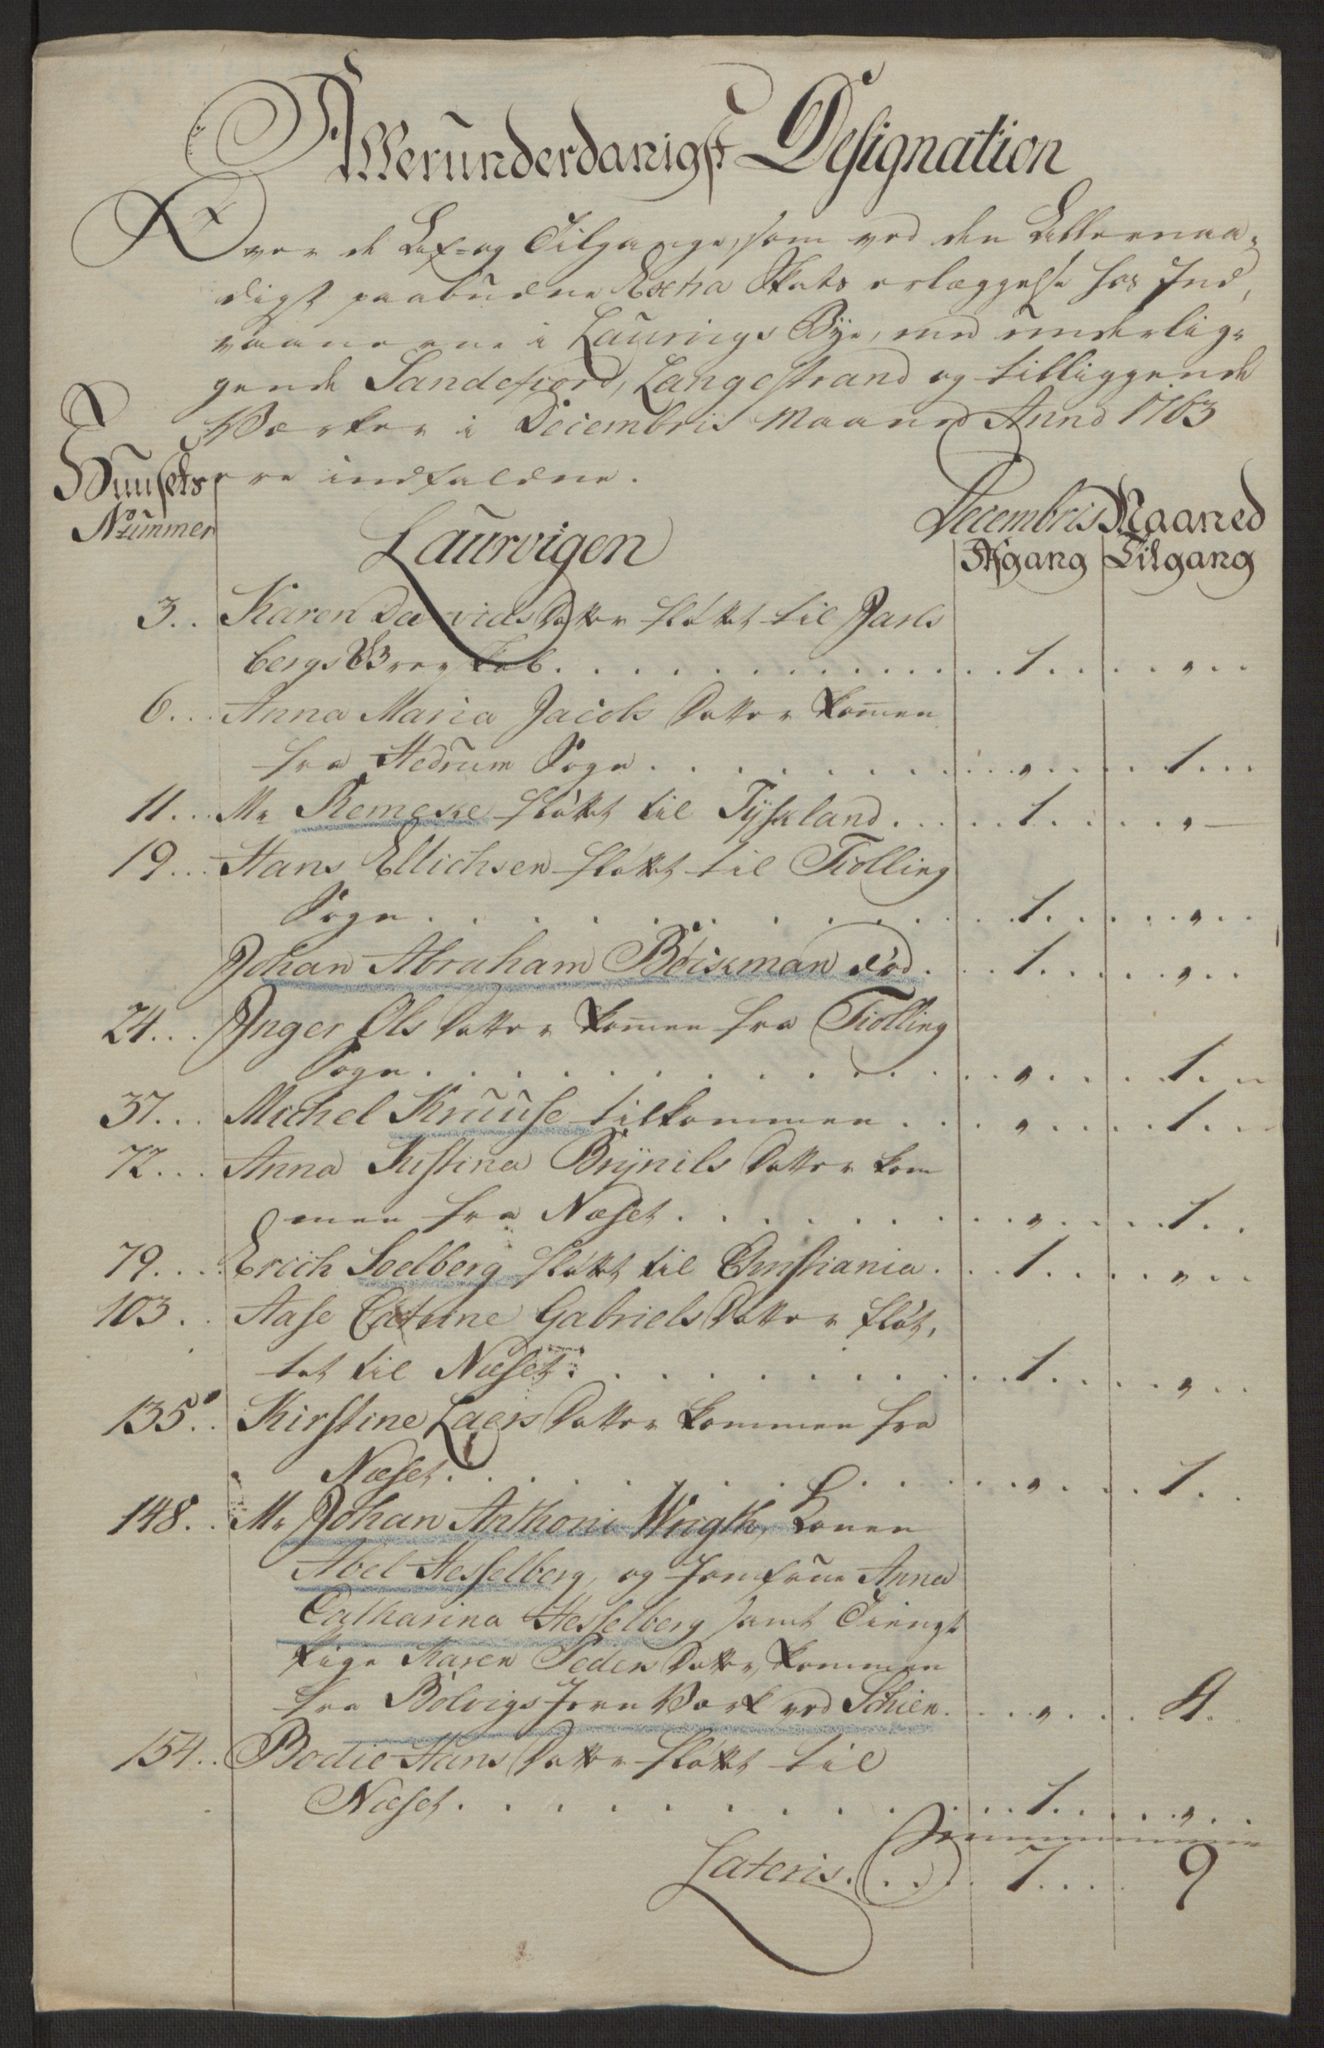 Allerunderdanigst Designation
Over de Af- og Tilgange, som ved den Allernaa-
digst paabudne Extra Skats erlæggelse hos Ind-
vaanerne i Laurvigs Bye, med underlig-
gende Sandefiord, Langestrand og tilliggende
Værker i Decembris Maaned Anno 1763
ere indfaldne.
Huusets
Nummer
Decembris Maaned
Laurvigen
Afgang Tilgang
3.. Karen Davids Datter fløttet til Jarls
bergs Grevskab. 1. „
6. Anna Maria Jacobs Datter kommen
fra Hedrum Sogn. „ 1.
11. Mr Remeske fløttet til Tyskland. 1. „
19. Hans Ellichsen fløttet til Tiolling
Sogn. 1. „
Johan Abraham Böiskman død. 1. „
24. Inger Ols Datter kommen fra Tiolling
Sogn. „ 1.
37. Michel Kruuse tilkommen. „ 1.
72. Anna Kistina Brÿnils Datter kom
men fra Næset. „ 1.
79. Erich Soelberg fløttet til Christiania. 1. „
103. Aase Catrine Gabriels Datter fløt,
tet til Næset. 1. „
135. Kirstine Laers Datter kommen fra
Næset. „ 1.
148. Mr Johan Anthoni Wrigth, Konen
Abel Hesselberg, og Jomfrue Anna
Catharina Hesselberg samt Tieneste
Pige Karen Peders Datter, kommen
fra Bolvigs Jern Værk ved Schien. „ 4.
154. Bodie Hans Datter fløttet til
Næset. 1. „
Lateris. 7. 9